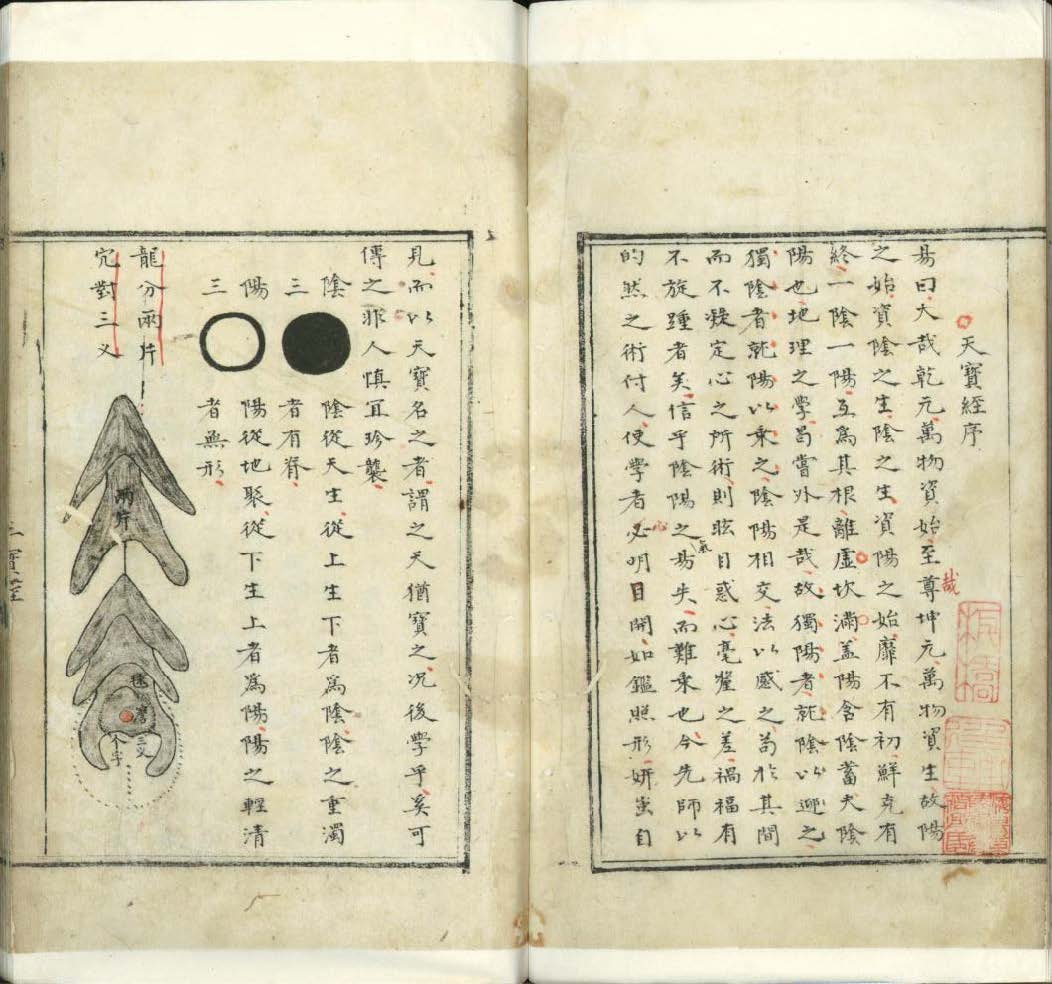 天寶經序
易曰大哉乾元萬物資始至哉尊坤元萬物資生故陽
之始資陰之生陰之生資陽之始靡不有初鮮克有
終一陰一陽互爲其根離虛坎滿盖陽含陰蓄夫陰
陽也地理之學曷嘗外是哉故獨陽者就陰以迎之
獨陰者就陽以乘之陰陽相交法以感之苟於其間
而不凝定心之所術則眩目惑心毫釐之差禍福有
不旋踵者矣信乎陰陽之氣易失而難乘也今先師以
的然之術付人使學者必心明目開如鑑照形妍蚩自
見而以天寶名之者謂之天猶寶之况後學乎奚可
傳之非人慎宜珍襲
陰三 陰從天生從上生下者爲陰陰之重濁
者有脊
陽三 陽從地聚從下生上者爲陽陽之輕清
者無形
龍分兩片
穴對三义
兩片
三义
个字
寶經